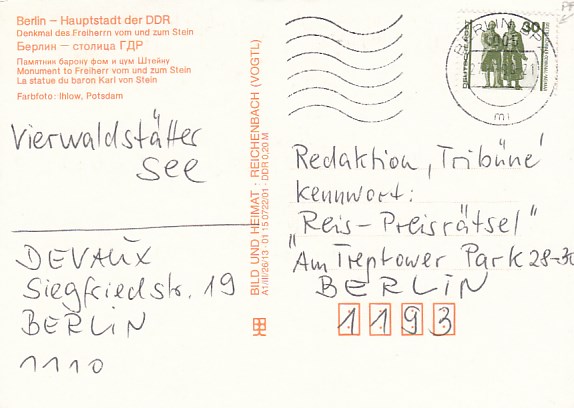 Berlin – Hauptstadt der DDR
Denkmal des Freiherrn vom und zum Stein
Берлин — столица ГДР
Памятник барону фом и цум Штейну
Monument to Freiherr vom und zum Stein
La statue du baron Karl von Stein
Farbfoto: Ihlow, Potsdam
Vierwaldstätter
See
DEVAUX
Siegfriedstr. 19
BERLIN
1110
BILD UND HEIMAT · REICHENBACH (VOGTL)
A1/III/26/13 · 01 15 0722/01 · DDR 0,20 M
BERLIN
30
Redaktion „Tribüne“
Kennwort:
„Reis-Preisrätsel“
Am Treptower Park 28-30
BERLIN
1193